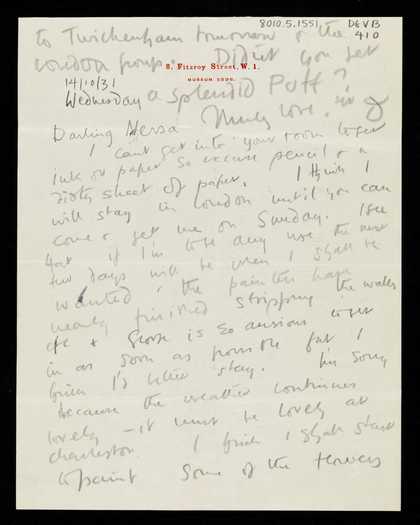 8010.5.1551
DEVB
410
to Twickenham tomorrow & the
London group. Didnt you get
8, Fitzroy Street, W. 1.
MUSEUM
14/10/31
Wednesday
a splendid Puff?
Much love.
Darling Nessa
I cant get into your room to get
ink or paper so excuse pencil & a
dirty sheet of paper. I think I
will stay in London until you can
come & get me on Sunday. I see
that if I'm to be any use the next
few days will be when I shall be
wanted, the painters have
nearly finished stripping the walls
etc & George is so anxious to get
in as soon as possible that I
think I'd better stay. I'm sorry
because the weather continues
lovely – it must be lovely at
Charleston. I think I shall start
to paint some of the flowers